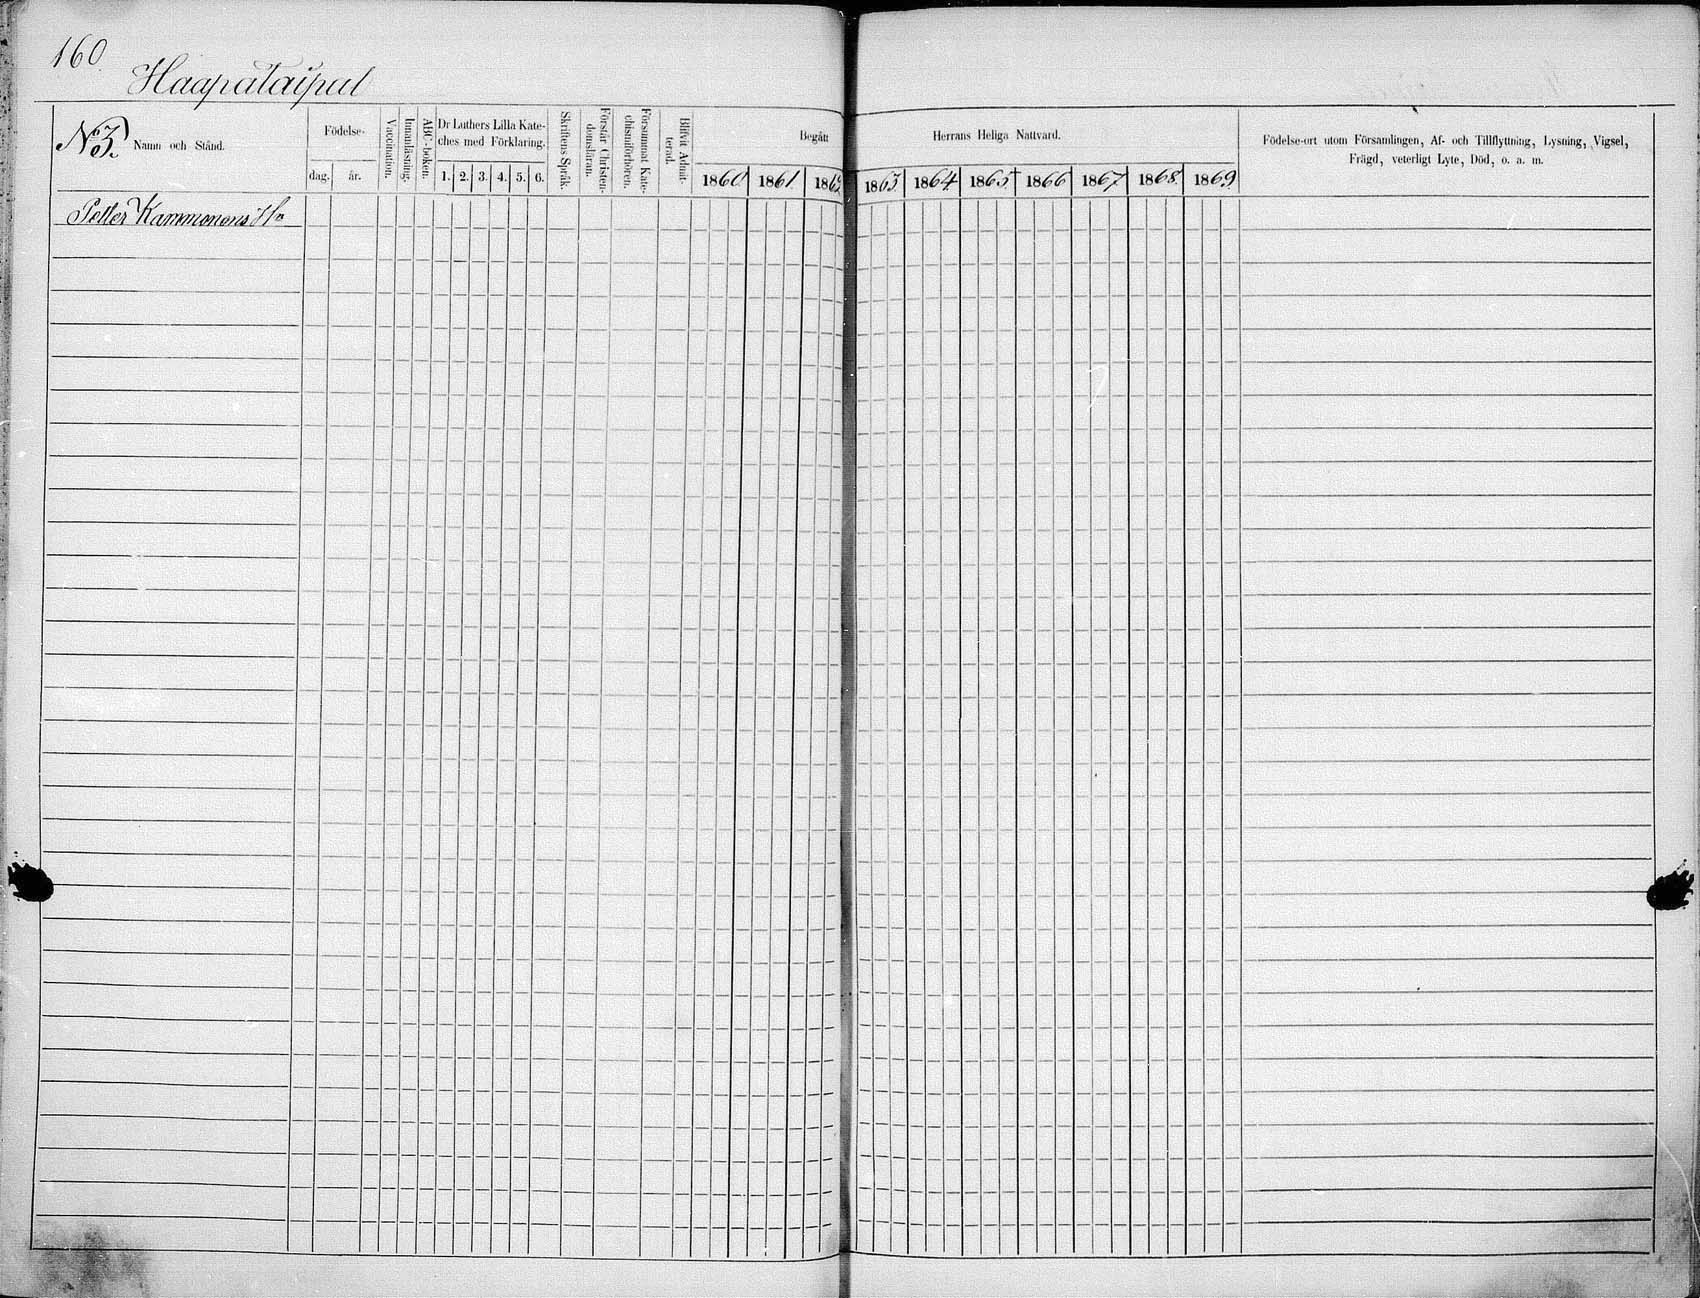 160
Haapataipal
N 3.
Namn och Stånd.
Födelse-
dag. år.
Vaccination.
Innanläsning.
ABC-boken.
Dr Luthers Lilla Kate-
ches med Förklaring.
1. 2. 3. 4. 5. 6.
Skriftens Språk.
Förstår Christen-
domsläran.
Försummat Kate-
chismiförhören.
Blifvit Admit-
terad.
Begått Herrans Heliga Nattvard.
1860 1861 1862 1863 1864 1865 1866 1867 1868 1869
Födelse-ort utom Församlingen, Af- och Tillflyttning, Lysning, Vigsel,
Frägd, veterligt Lyte, Död, o. a. m.
Petter Kammonens